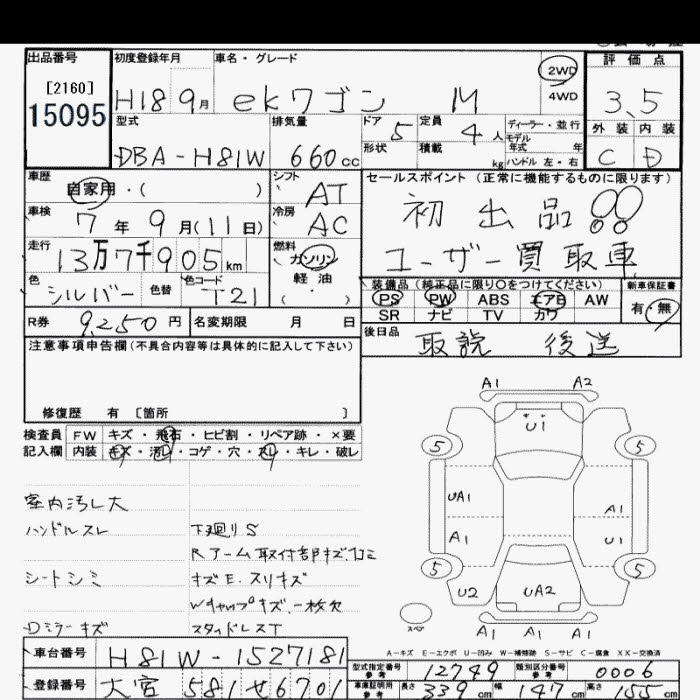 出品番号 初度登録年月 車名・グレード 評価点
[2160] H18 9月 ekワゴン M 2WD 4WD 3.5
15095
型式 排気量 ドア 定員 ディーラー・並行 外装 内装
DBA-H81W 660cc 5 4人 モデル年式 年 C D
形状 積載 kg ハンドル 左・右
車歴 シフト セールスポイント (正常に機能するものに限ります)
自家用・( ) AT 初出品!!
車検 冷房
7年9月(11日) AC ユーザー買取車
走行 燃料
13万7千905km ガソリン
色 色替 色コード 軽油
シルバー T21 ( )
装備品(純正品に限り○をつけてください) 新車保証書
PS PW ABS エアB AW 有・無
SR ナビ TV カワ
R券 9,250円 名変期限 月 日 後日品
取説 後送
注意事項申告欄(不具合内容等は具体的に記入して下さい)
修復歴 有 〔箇所 〕
検査員 FW キズ・飛石・ヒビ割・リペア跡・×要
記入欄 内装 キズ・汚れ・コゲ・穴・スレ・キレ・破レ
室内汚レ大
ハンドルスレ 下廻りS
Rアーム取付部キズ凹ミ
シートシミ キズE.スリキズ
Wキャップキズ、一枚欠
Dミラーキズ スタッドレスT
A1 A2
U1
5 5
UA1 A1
A1 U1
5 5
U2 UA2
スペア
A1 A1 A1
A-キズ E-エクボ U-凹み W-補修跡 S-サビ C-腐食 XX-交換済
車台番号 H81W-1527181
型式指定番号 参考 12749 類別区分番号 参考 0006
登録番号 大宮 581 せ 6701
車庫証明用 参考 長さ 339cm 幅 147cm 高さ 155cm